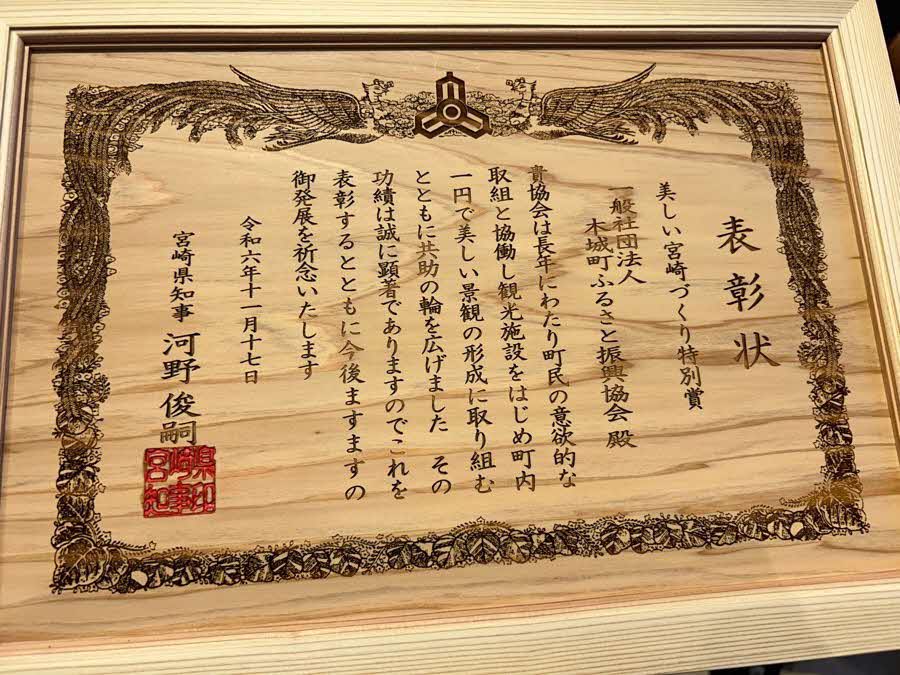 表彰状
美しい宮崎づくり特別賞
一般社団法人
木城町ふるさと振興協会 殿
貴協会は長年にわたり町民の意欲的な
取組と協働し観光施設をはじめ町内
一円で美しい景観の形成に取り組む
とともに共助の輪を広げました その
功績は誠に顕著でありますのでこれを
表彰するとともに今後ますますの
御発展を祈念いたします
令和六年十一月十七日
宮崎県知事 河野俊嗣
宮崎県知事印